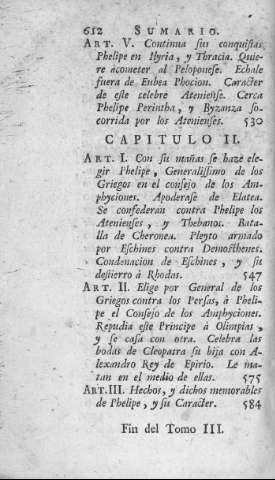 612 SUMARIO.
ART. V. Continua sus conquistas
Phelipe en Ilyria, y Thracia. Quie-
re acometer al Peloponese. Echale
fuera de Eubea Phocion. Caracter
de este celebre Ateniense. Cerca
Phelipe Perintha, y Byzanza so-
corrida por los Atenienses. 530
CAPITULO II.
ART. I. Con sus mañas se haze ele-
gir Phelipe, Generalissimo de los
Griegos en el consejo de los Am-
phyciones. Apoderase de Elatea.
Se confederan contra Phelipe los
Atenienses, y Thebanos. Bata-
lla de Cheronea. Pleyto armado
por Eschines contra Demosthenes.
Condenacion de Eschines, y su
destierro à Rhodas. 547
ART. II. Elige por General de los
Griegos contra los Persas, à Pheli-
pe el Consejo de los Amphyciones.
Repudia este Principe à Olimpias,
y se casa con otra. Celebra las
bodas de Cleopatra su hija con A-
lexandro Rey de Epirio. Le ma-
tan en el medio de ellas. 575
ART. III. Hechos, y dichos memorables
de Phelipe, y su Caracter. 584
Fin del Tomo III.